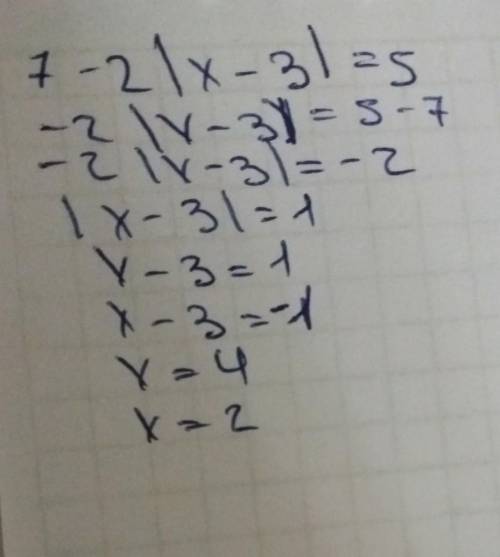 7 - 2|x - 3| = 5
-2|x - 3| = 5 - 7
-2|x - 3| = -2
|x - 3| = 1
x - 3 = 1
x - 3 = -1
x = 4
x = 2